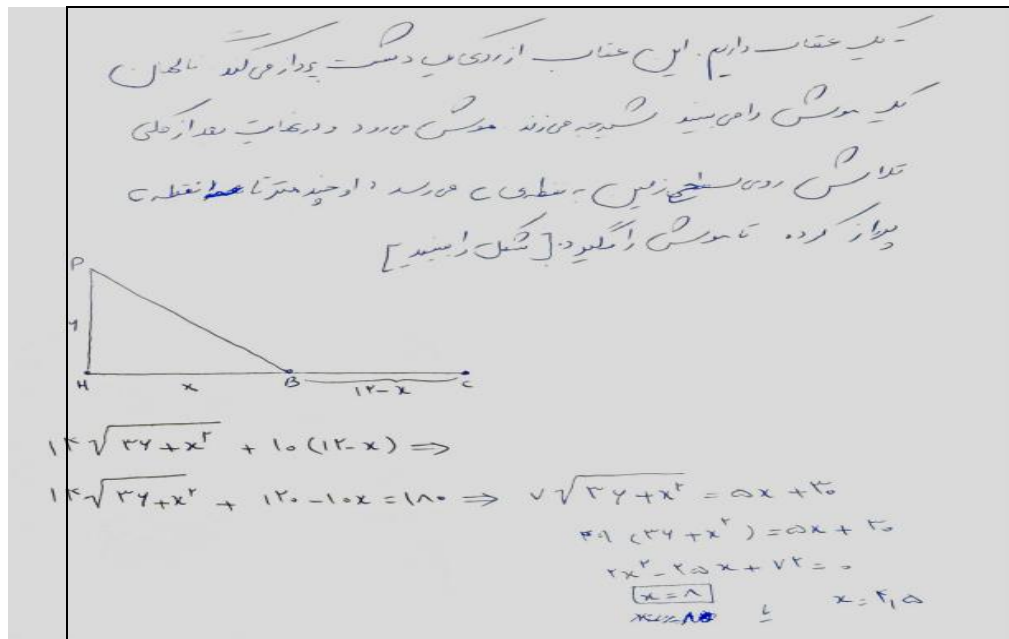 - یک عقاب داریم. این عقاب از روی یک دشت پرواز می کند ناگهان
یک موش را می بیند شیرجه می زند موش می رود و در نهایت بعد از کلی
تلاش روی سطح زمین به نقطه ی c می رسد؛ او چند متر تا نقطه c
پرواز کرده تا موش را بگیرد. [شکل را ببینید]
P
۶
H x B ۱۲-x c
۱۴√۳۶+x² + ۱۰(۱۲-x) ⇒
۱۴√۳۶+x² + ۱۲۰-۱۰x=۱۸۰ ⇒ ۷√۳۶+x² = ۵x+۳۰
۴۹(۳۶+x²)=۵x+۳۰
۲x²-۲۵x+۷۲=۰
x=۸ یا x=۴,۵